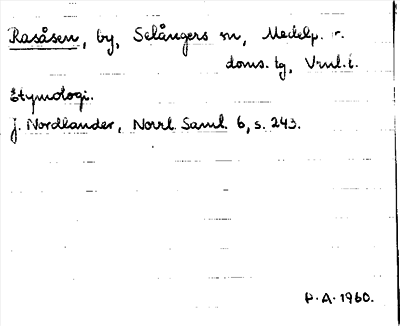 Rasåsen, by, Selångers sn, Medelp.
doms. tg, Vnl. l.
Etymologi.
J. Nordlander, Norrl. Saml. 6, s. 243.
P. A. 1960.